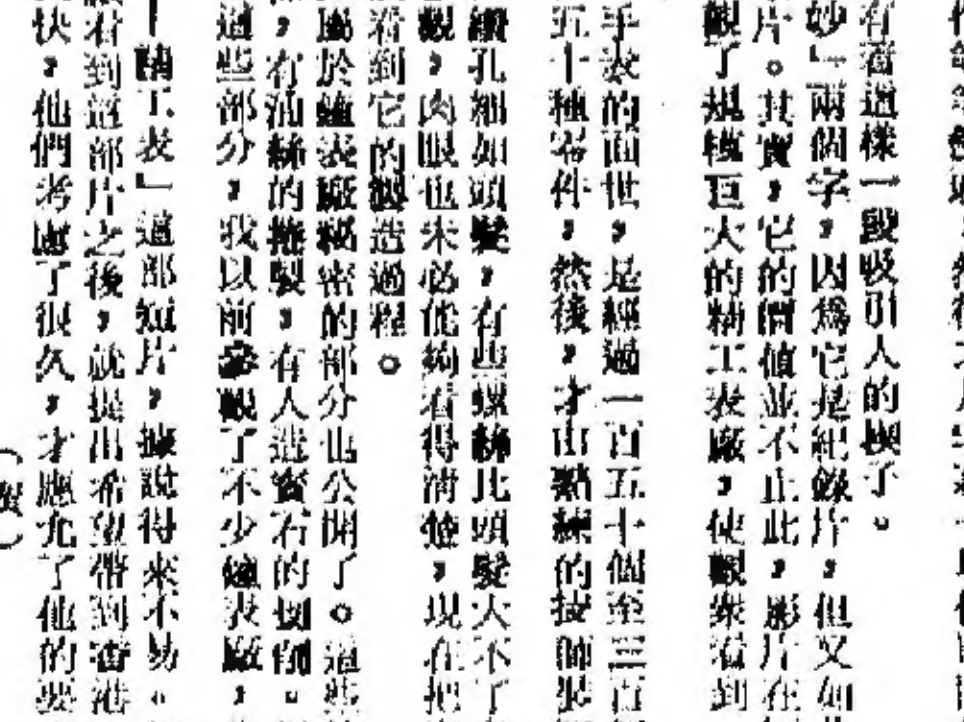 有着這樣一段吸引人的
妙」兩個字，因爲它是紀錄片，但又如
片。其實，它的價値並不止此，影片在
觀了規模巨大的精工表廠，使觀衆看到
手表的面世，是經過一百五十個至三百
五十種零件，然後，才由熟練的技師裝
鑽孔細如頭髮，有些螺絲比頭髮大不了
觀，肉眼也未必能夠看得淸楚，現在把
看到它的製造過程。
屬於鐘表廠秘密的部分也公開了。這些
，有油絲的捲製，有人造寶石的切削。
這些部分，我以前參觀了不少鐘表廠，
精工表」這部短片，據說得來不易。
看到這部片之後，就提出希望帶到香港
快，他們考慮了很久，才應允了他的要